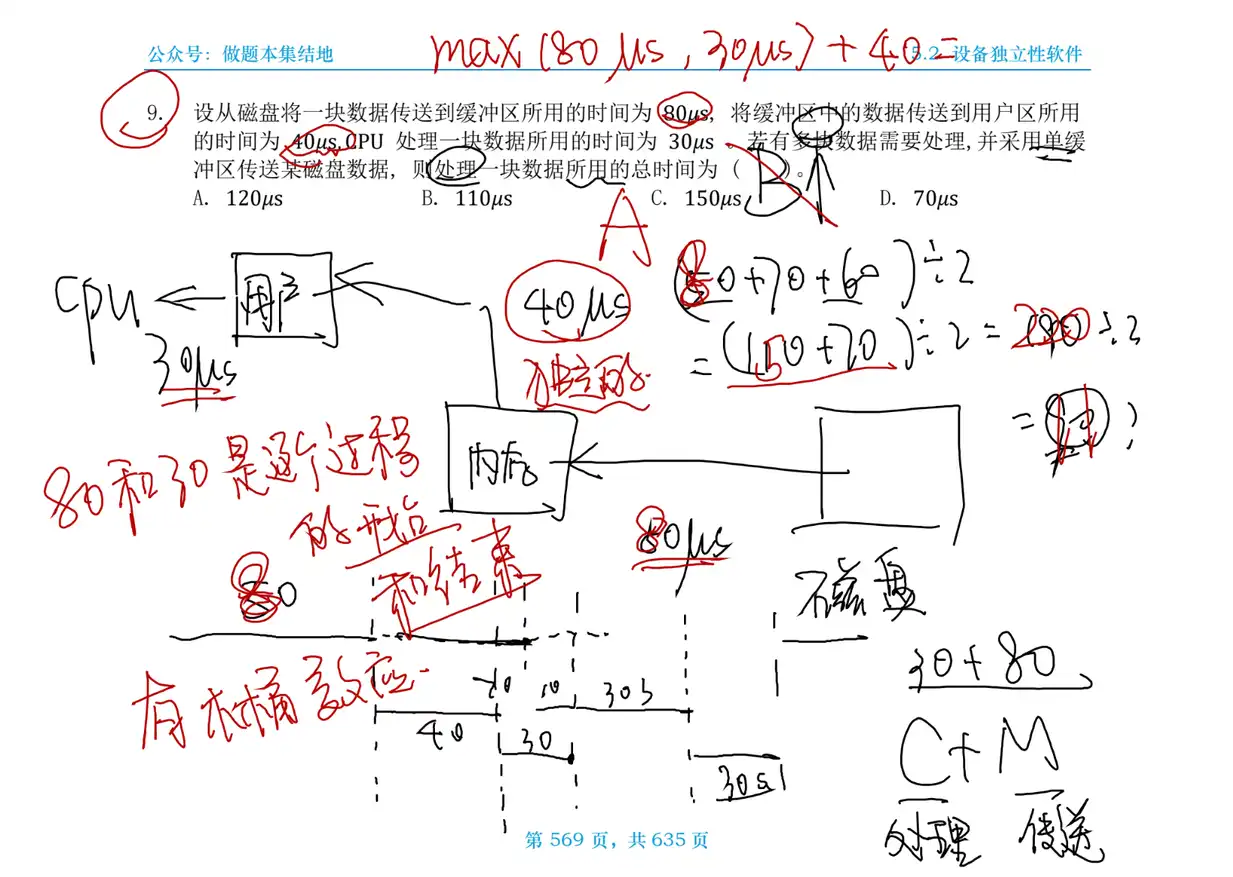 公众号：做题本集结地
max(80μs,30μs)+40=
5.2 设备独立性软件
9. 设从磁盘将一块数据传送到缓冲区所用的时间为 80μs, 将缓冲区中的数据传送到用户区所用
的时间为 40μs,CPU 处理一块数据所用的时间为 30μs 。若有多块数据需要处理,并采用单缓
冲区传送某磁盘数据, 则处理一块数据所用的总时间为 ( )。
B
A. 120μs B. 110μs C. 150μs D. 70μs
A
cpu
用户
40μs
独立的
30μs
0+70+60)÷2
=(150+70)÷2=220÷2
=
80和30是逐个过程
的开始
和结束
内存
80μs
磁盘
80
有木桶效应
40
30
10
30s
30s
30+80
C+M
处理 传送
第 569 页, 共 635 页